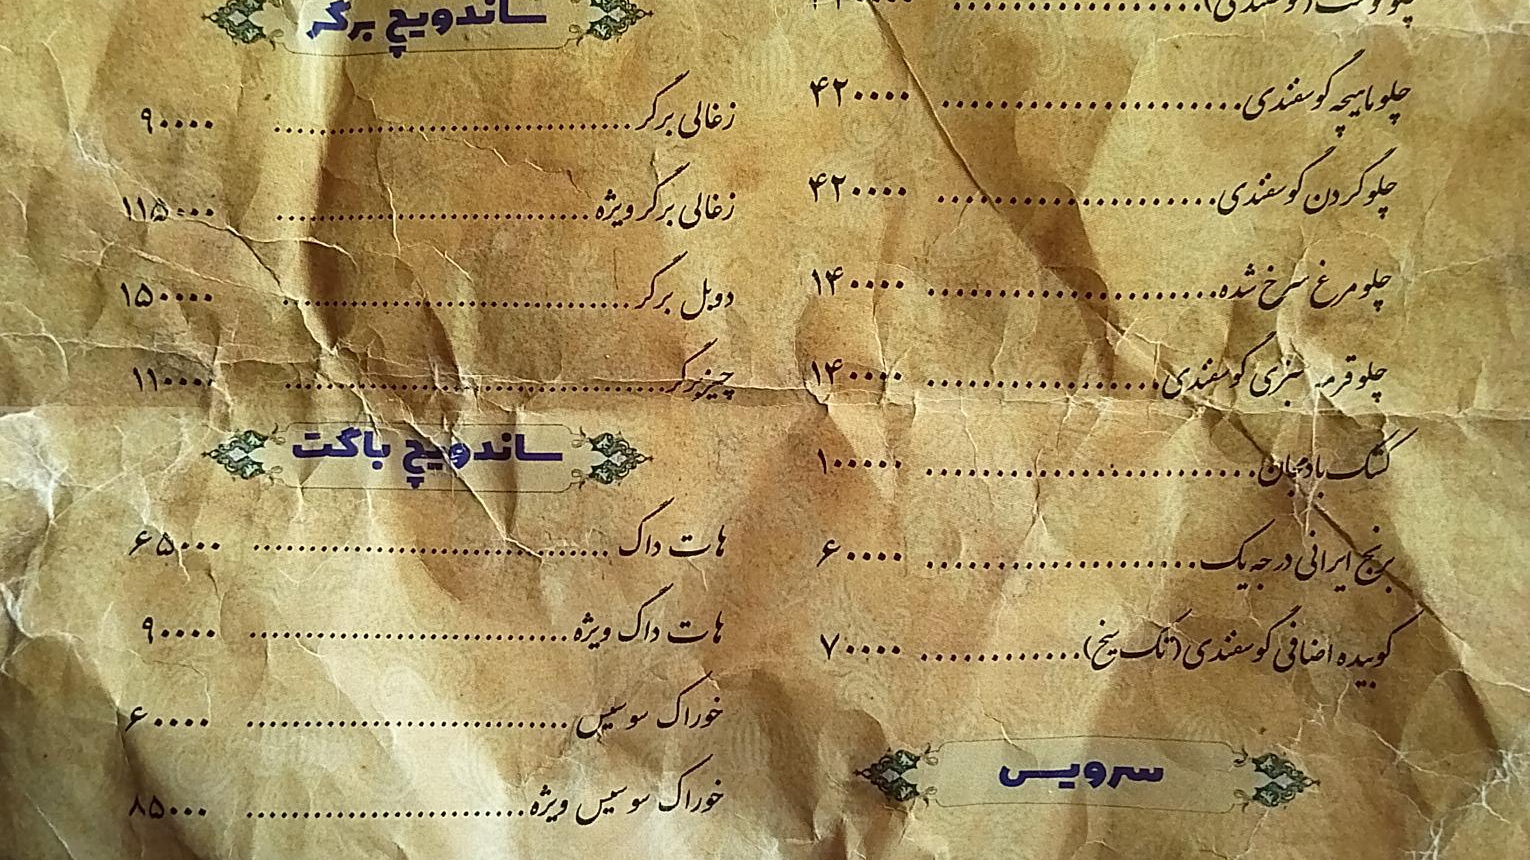 چلو ماهیچه گوسفندی ۴۲۰۰۰۰
چلو گردن گوسفندی ۴۲۰۰۰۰
چلو مرغ سرخ شده ۱۴۰۰۰۰
چلو قرمه سبزی گوسفندی ۱۴۰۰۰۰
کشک بادمجان ۱۰۰۰۰۰
برنج ایرانی درجه یک ۶۰۰۰۰
کوبیده اضافی گوسفندی (تک سیخ) ۷۰۰۰۰
سرویس
ساندویچ برگر
زغالی برگر ۹۰۰۰۰
زغالی برگر ویژه ۱۱۵۰۰۰
دوبل برگر ۱۵۰۰۰۰
چیزبرگر ۱۱۰۰۰۰
ساندویچ باگت
هات داگ ۶۵۰۰۰
هات داگ ویژه ۹۰۰۰۰
خوراک سوسیس ۶۰۰۰۰
خوراک سوسیس ویژه ۸۵۰۰۰